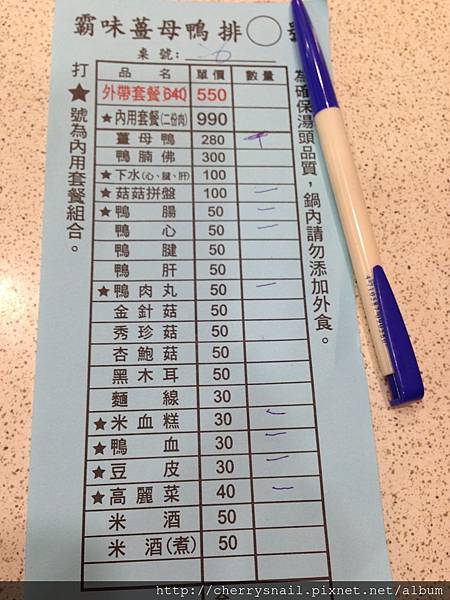 霸味薑母鴨 排○號
桌號: 6
品名 單價 數量
外帶套餐 640 550
★內用套餐(二份肉) 990
薑母鴨 280
鴨腩佛 300
★下水(心、腱、肝) 100
★菇菇拼盤 100 一
★鴨腸 50 一
鴨心 50 一
鴨腱 50
鴨肝 50
★鴨肉丸 50 一
金針菇 50
秀珍菇 50
杏鮑菇 50
黑木耳 50
麵線 30
★米血糕 30 一
★鴨血 30 一
★豆皮 30 一
★高麗菜 40 一
米酒 50
米酒(煮) 50
打★號為內用套餐組合。
為確保湯頭品質，鍋內請勿添加外食。
http://cherrysnail.pixnet.net/album